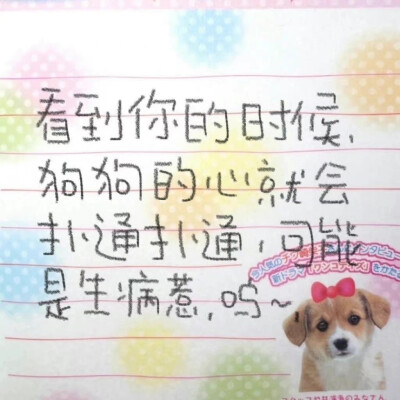 看到你的时候,
狗狗的心就会
扑通扑通,可能
是生病惹,呜~